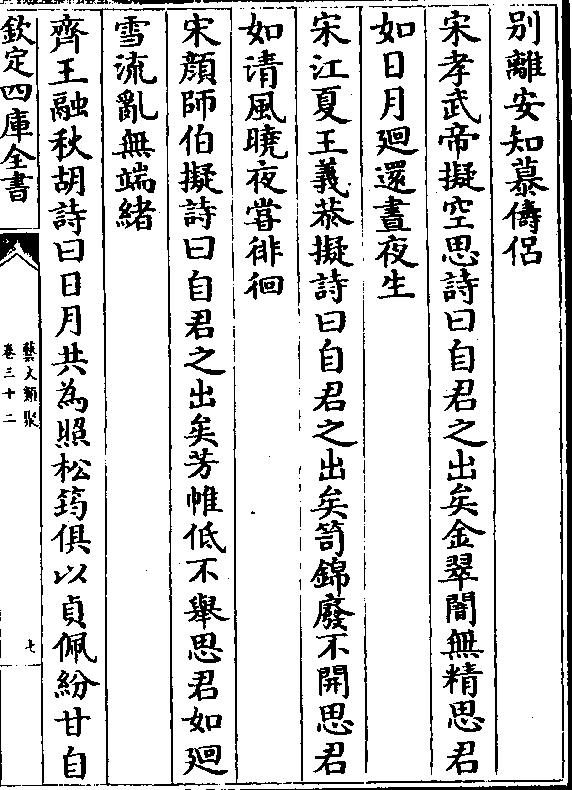 别離安知慕儔侣
宋孝武帝擬空思詩曰自君之出矣金翠闇無精思君
如日月廻還晝夜生
宋江夏王義恭擬詩曰自君之出矣笥錦廢不開思君
如清風曉夜嘗徘徊
宋顔師伯擬詩曰自君之出矣芳帷低不舉思君如廻
雪流亂無端緒
齊王融秋胡詩曰日月共為照松筠俱以貞佩紛甘自
欽定四庫全書
藝文類聚
卷三十二
七